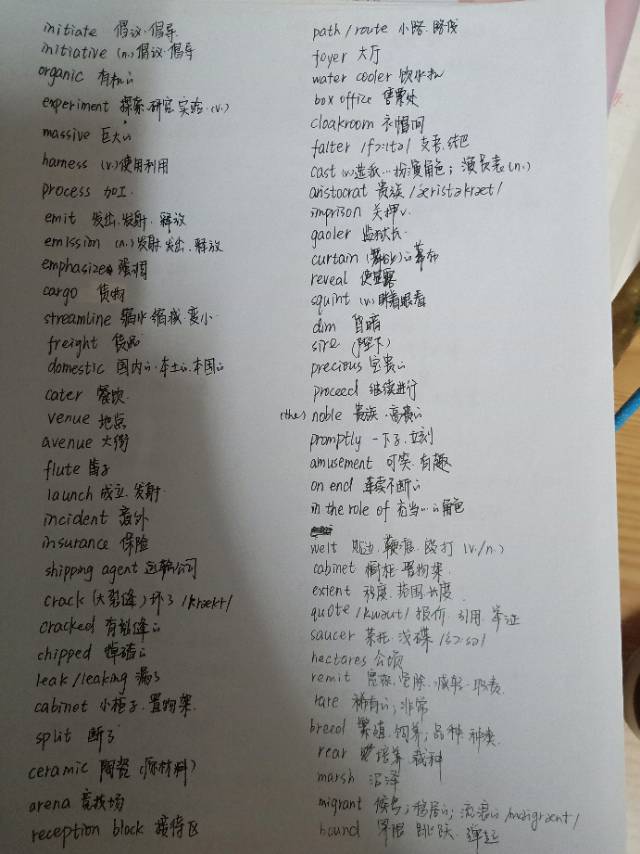 initiate 倡议.倡导
initiative (n.)倡议.倡导
organic 有机的
experiment 探索.研究.实验.(v.)
massive 巨大的
harness (v.)使用利用
process 加工.
emit 发出.发射.释放
emission (n.)发射.发出.释放
emphasize 强调
cargo 货物
streamline 缩水.缩减.变小
freight 货品
domestic 国内的.本土的.本国的
cater 餐饮
venue 地点
avenue 大街
flute 笛子
launch 成立.发射.
incident 意外
insurance 保险
shipping agent 运输公司
crack (大裂缝) 坏了 /krækt/
cracked 有裂缝的
chipped 掉碴的
leak/leaking 漏了
cabinet 小柜子.置物架.
split 断了
ceramic 陶瓷 (原材料)
arena 竞技场
reception block 接待区
path/route 小路.路线
foyer 大厅
water cooler 饮水机
box office 售票处
cloakroom 衣帽间
falter /fɔ:ltə/ 支吾.结巴
cast (v.)选派...扮演角色; 演员表(n.)
aristocrat 贵族 /æristəkræt/
imprison 关押v.
gaoler 监狱长
curtain (舞台)的幕布
reveal 使显露
squint (v.) 眯着眼看
dim 昏暗
sire (陛下)
precious 宝贵的
proceed 继续进行
(the) noble 贵族.高贵的
promptly 一下子.立刻
amusement 可笑.有趣
on end 连续不断的
in the role of 充当...的角色
welt 贴边.鞭痕.殴打 (v./n.)
cabinet 橱柜.置物架.
extent 程度.范围.长度
quote /kwəut/ 报价.引用.举证
saucer 茶托.浅碟 /sɔ:sə/
hectares 公顷
remit 宽恕.免除.减轻.
rare 稀有的; 非常
breed 繁殖.饲养; 品种.种类
rear 培养.栽种
marsh 沼泽
migrant 候鸟; 移居的; 流浪的 /maigrænt/
bound 界限.跳跃.弹起